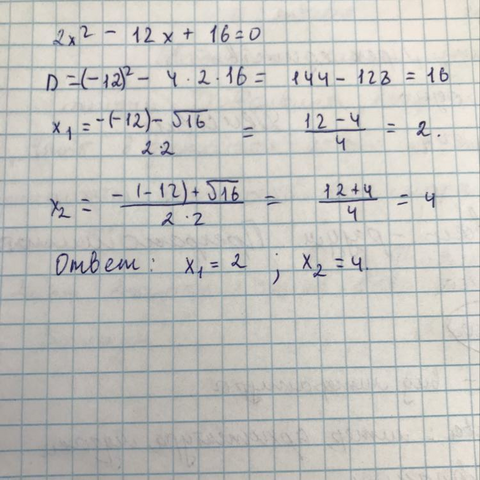 2x² - 12x + 16=0
D=(-12)² - 4·2·16 = 144 - 128 = 16
x₁ = (-(-12)-√16)/(2·2) = (12-4)/4 = 2.
x₂ = (-(-12)+√16)/(2·2) = (12+4)/4 = 4
Ответ: x₁=2 ; x₂=4.